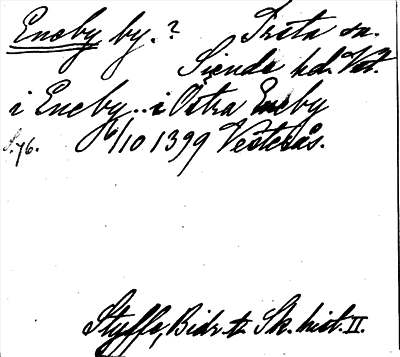 Eneby by. ? Irsta sn.
Siende hd. Vstm.
i Eneby.. i Östra Eneby
S. 76. 6/10 1399 Vesterås.
Styffe, Bidr. t. Sk. hist. II.